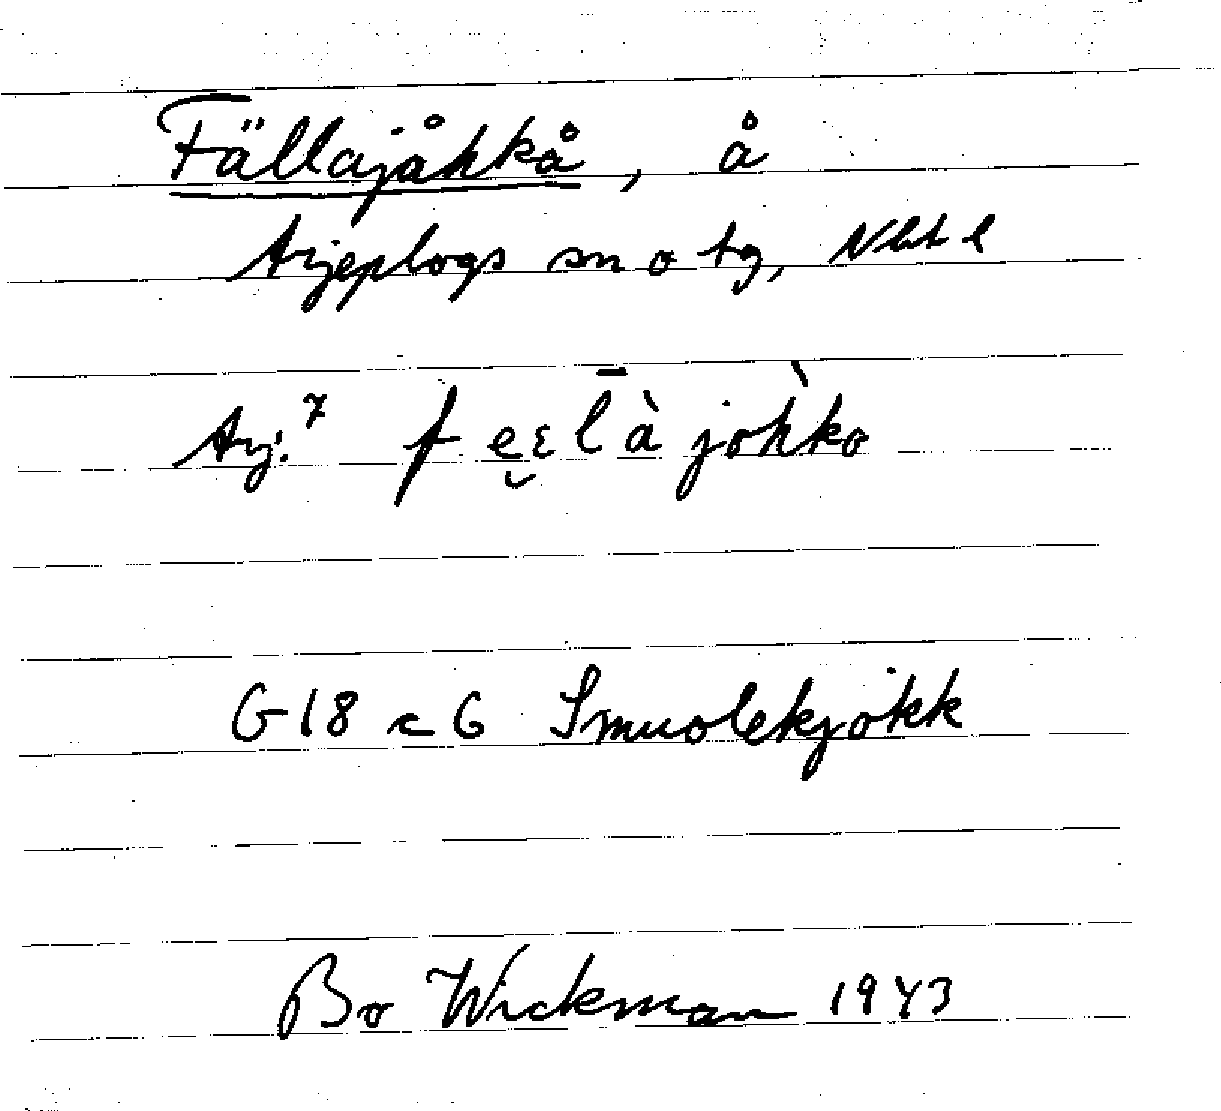 Fällajåhkå, å
Arjeplogs sn o tg, Nbt l
Arj.⁷ f e̮ɛl̄à jòhko
G18 c 6 Smuolekjokk
Bo Wickman 1943